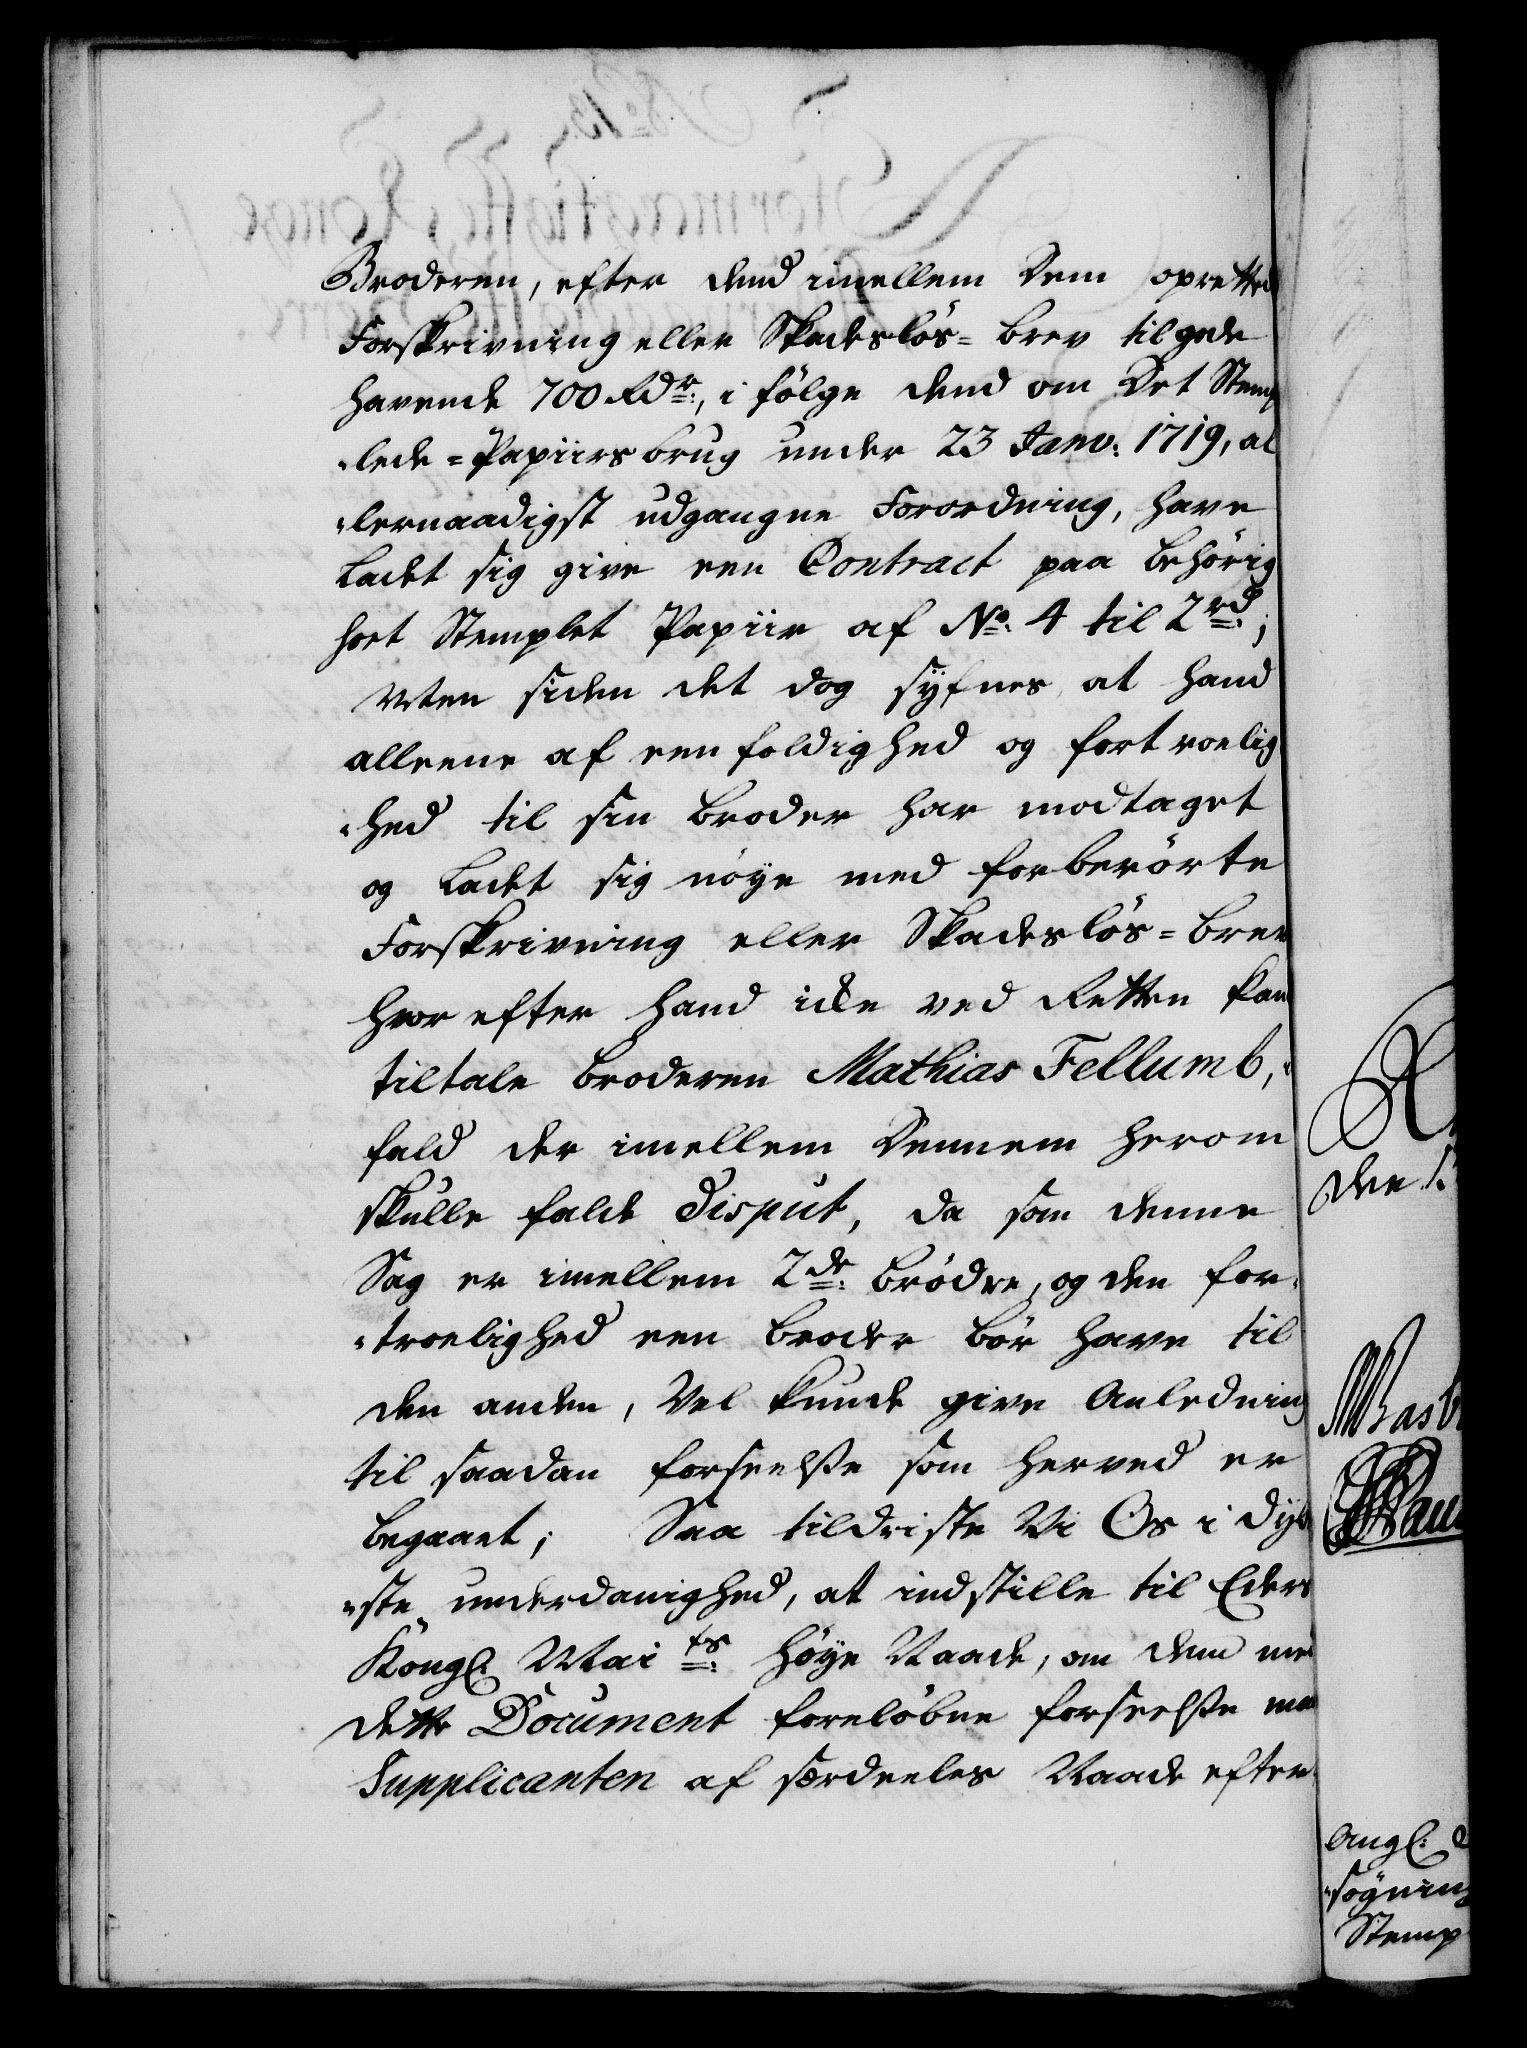 Broderen, efter dend imellem dem opretted
Forskrivning eller Skadesløs= brev tilgode
havende 700 Rdr:, i følge dend om det Stemp
"lede = Papiirs brug under 23 Janv: 1719, al
"lernaadigst udgangne Forordning, have
ladet sig give een Contract paa behørig
hoet Stemplet Papiir af No: 4 til 2 rd:;
Men siden det dog syfnes at hand
alleene af eenfoldighed og fortroelig
"hed til sin broder har modtaget
og ladet sig nøye med forberørte
Forskrivning eller Skadesløs= brev
hvor efter hand icke ved Retten kan
tiltale broderen Mathias Fellumb,
fald der imellem dennem herom
skulle falde Disput, da som denne
Sag er imellem 2de: brødre, og den for
"troelighed een broder bør have til
den anden, vel kunde give Anledning
til saadan forseelße som herved er
begaaet; Saa tildriste Vi Os i dyb
"ste underdanighed, at indstille til Eders
Kongl: Maits: høye Naade, om dem med
dette Document foreløbne forseelße maa
Supplicanten af særdeeles Naade efter
den 1.
Angl:
"søgning
Stemp